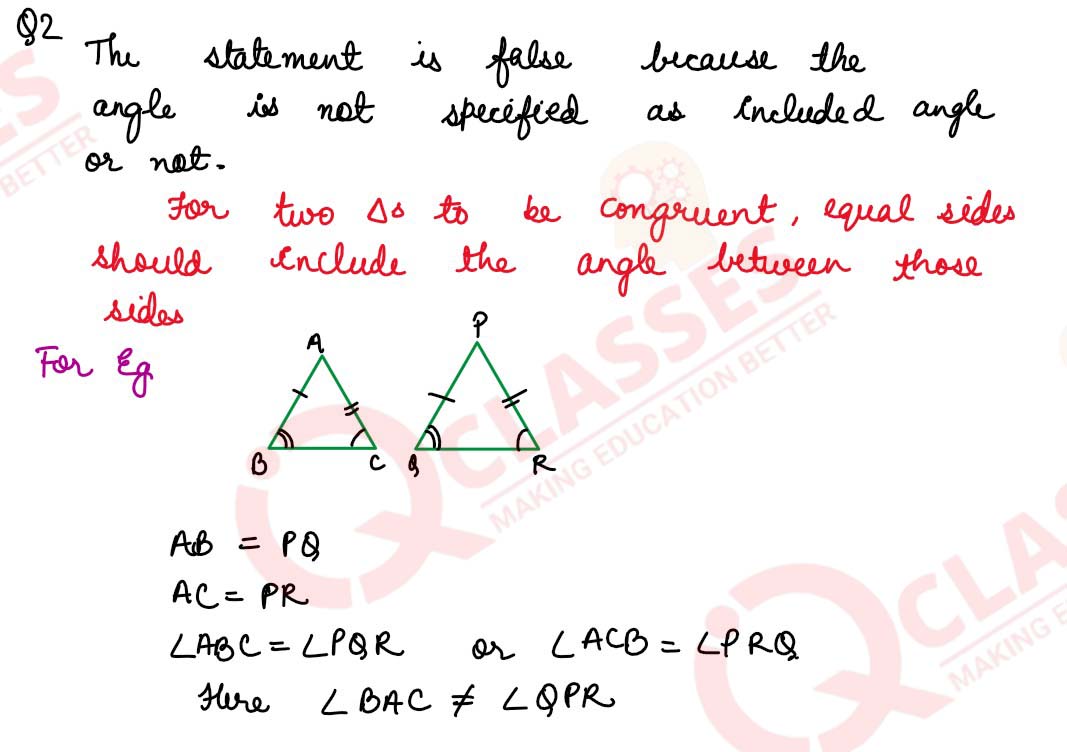 Q2
The statement is false because the
angle is not specified as included angle
or not.
For two Δs to be congruent, equal sides
should include the angle between those
sides
For Eg
A
P
B
C
Q
R
AB = PQ
AC = PR
∠ABC = ∠PQR or ∠ACB = ∠PRQ
Here ∠BAC ≠ ∠QPR
ES
BETTER
CLASSES
MAKING EDUCATION BETTER
CLA
MAKING E